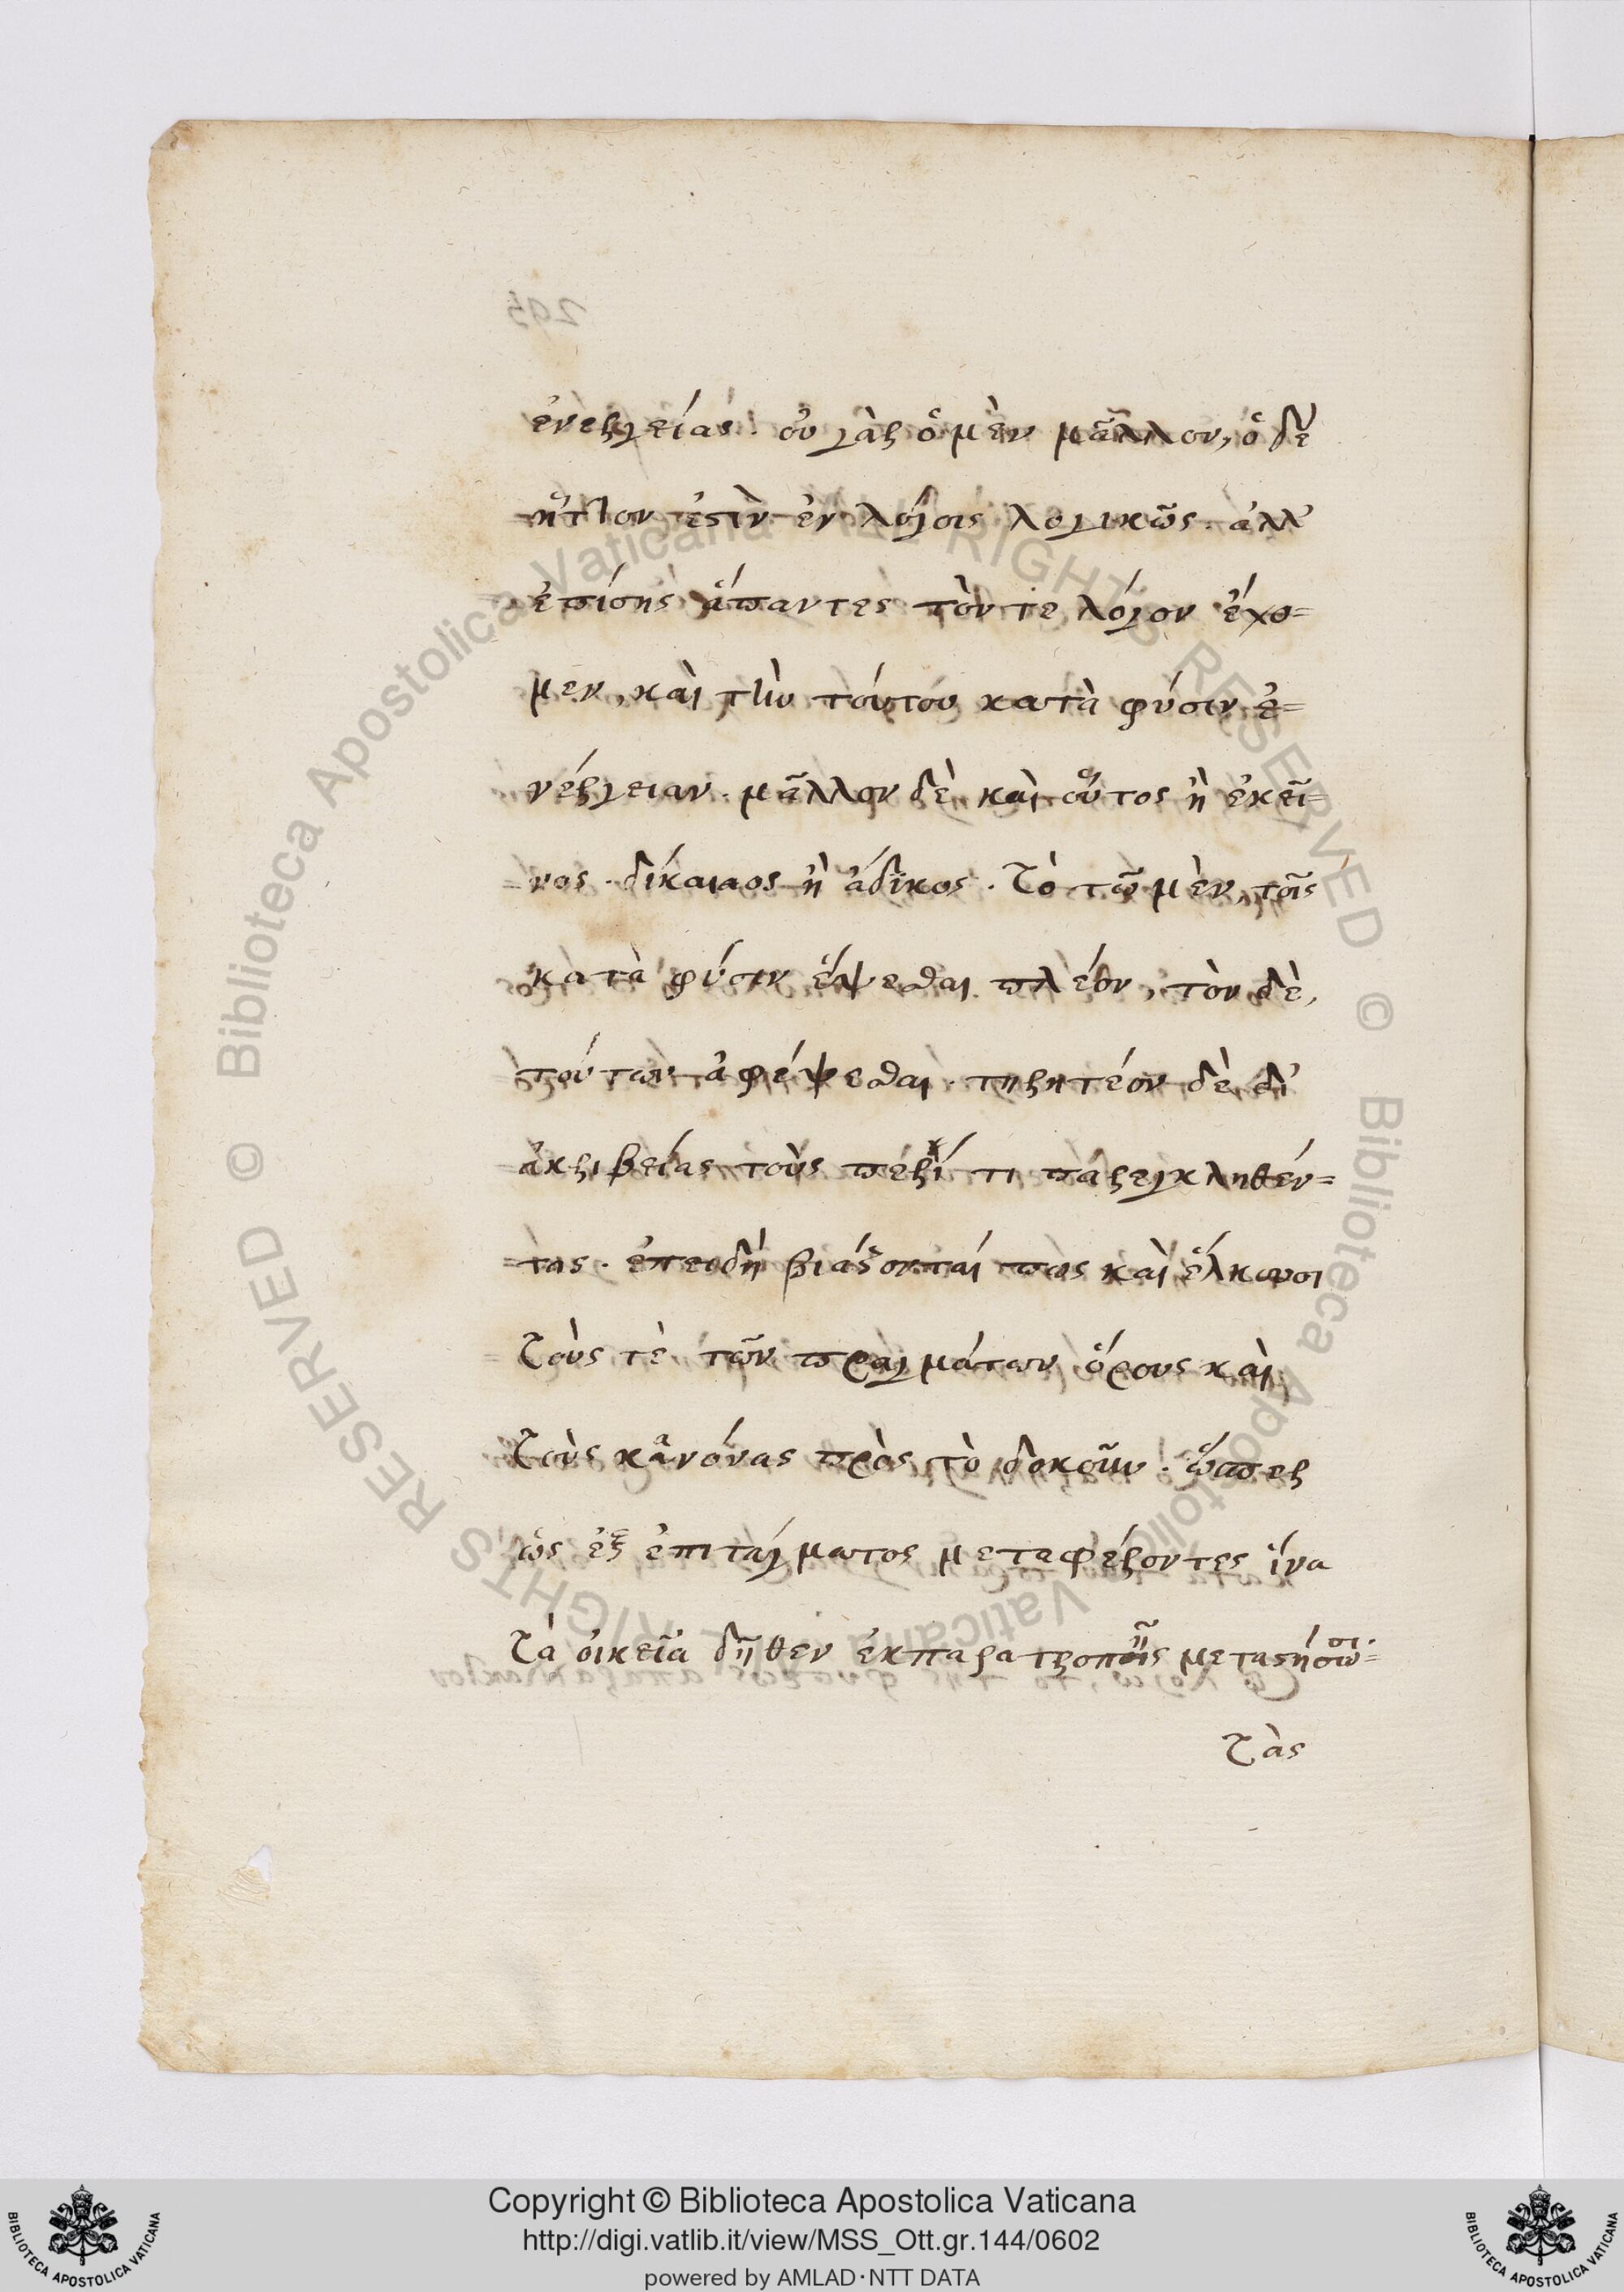 ἐνεργείας. οὐ γὰρ ὁ μὲν μᾶλλον, ὁ δὲ
ἧττον ἐστὶν ἐν λόγοις λογικῶς. ἀλλ'
ἐπίσης ἅπαντες τὸν τε λόγον ἔχο=
μεν, καὶ τὴν τούτου κατὰ φύσιν ἐ=
νέργειαν. μᾶλλον δὲ καὶ οὗτος ἢ ἐκεῖ=
νος. δίκαιαος ἢ ἄδικος. τὸ τῶ μὲν, τοῖς
κατὰ φύσιν ἕψεσθαι πλέον, τὸν δὲ,
τούτων ἀφέψεσθαι. τηρητέον δὲ δι'
ἀκριβείας τοὺς περί τι παρεγκληθέν=
τας. ἐπειδὴ βιάζονταί πως καὶ ἕλκουσι
τοὺς τὲ τῶν πραγμάτων ὅρους καὶ
τοὺς κανόνας πρὸς τὸ δοκοῦν. ὥσπερ
ὡς ἐξ ἐπιτάγματος μεταφέροντες ἵνα
τὰ οἰκεῖα δῆθεν ἐκπαρατροπῆς μεταστήσωσι.
τὰς
295
© Biblioteca Apostolica Vaticana ALL RIGHTS RESERVED
© Biblioteca Apostolica Vaticana ALL RIGHTS RESERVED
Copyright © Biblioteca Apostolica Vaticana
http://digi.vatlib.it/view/MSS_Ott.gr.144/0602
powered by AMLAD·NTT DATA
BIBLIOTECA APOSTOLICA VATICANA
BIBLIOTECA APOSTOLICA VATICANA